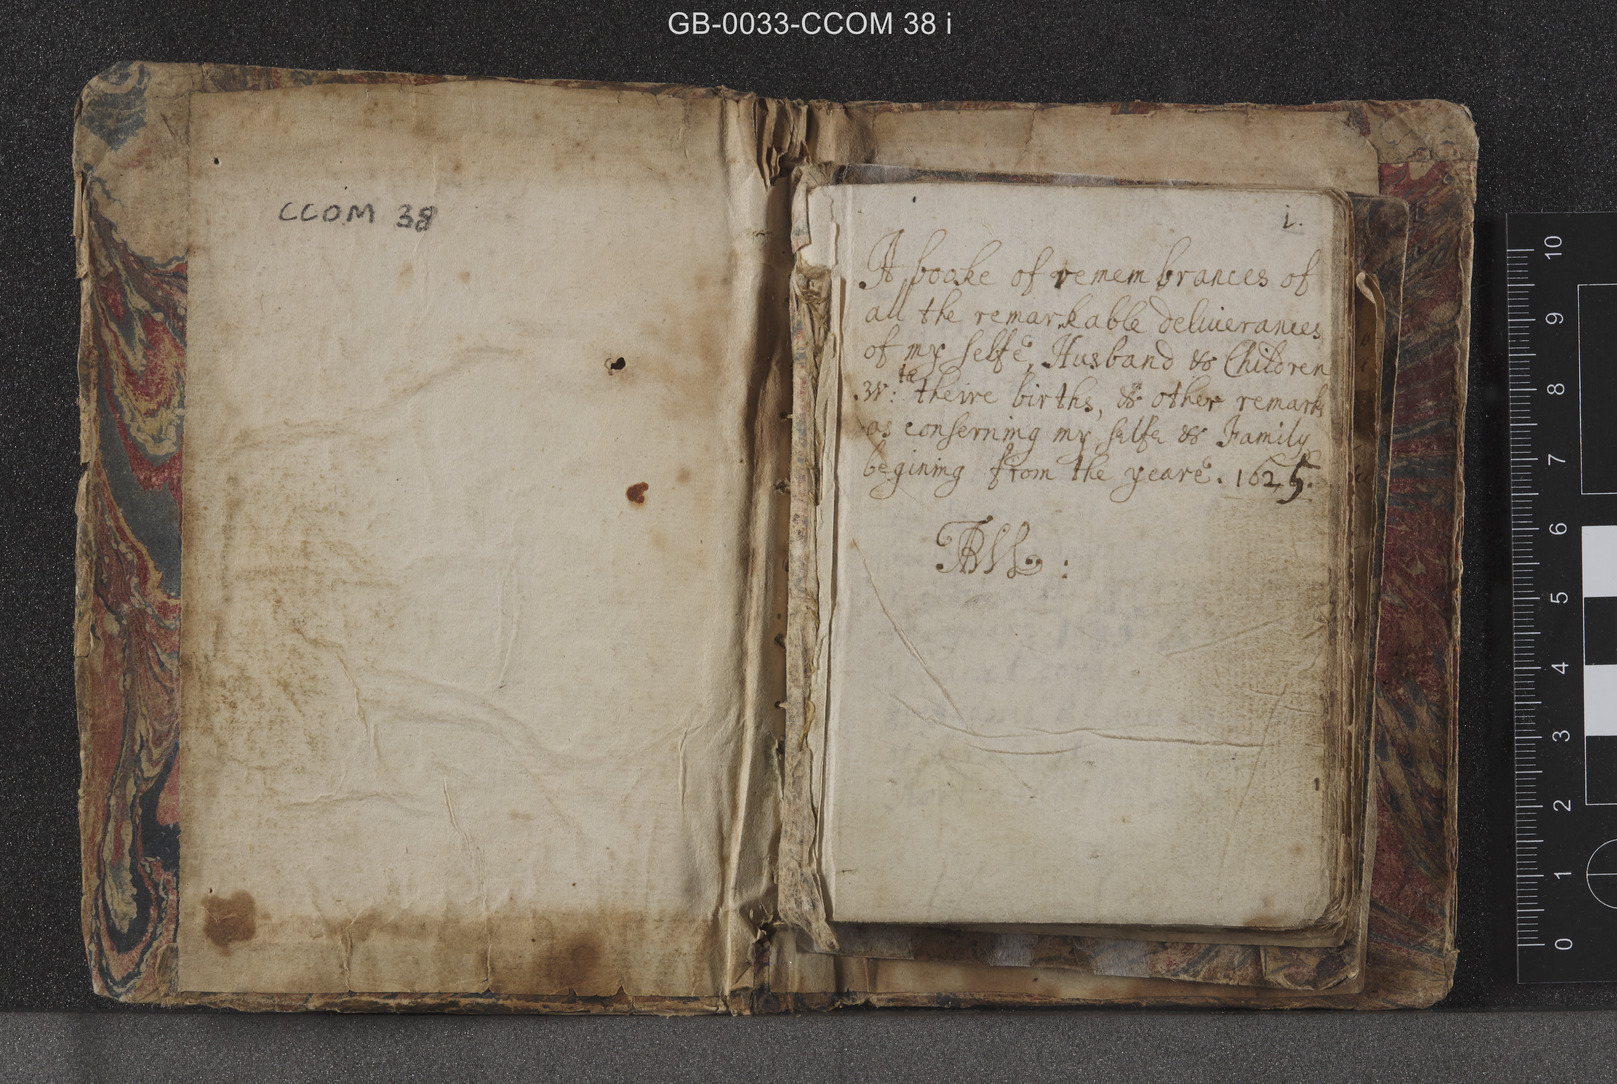 GB-0033-CCOM 38 i
CCOM 38
i.
A booke of remembrances of
all the remarkable deliverances
of my selfe, Husband & Children
wth: theire births, & other remarks
as conserning my selfe & Family
begining from the yeare. 1625.
10
9
8
7
6
5
4
3
2
1
0